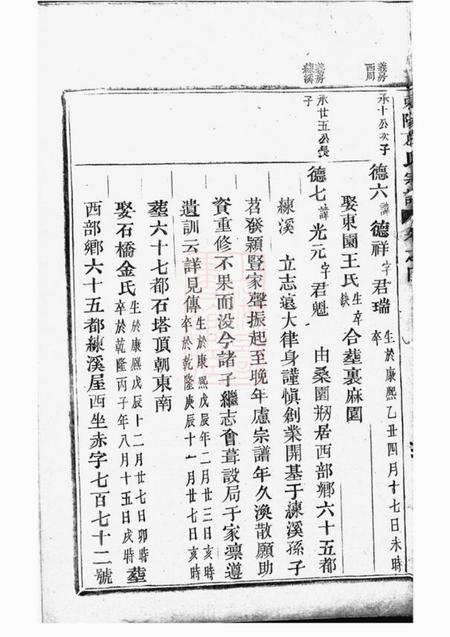 義房
西周
承十公次子
德六 諱德祥字君瑞 生於康熙乙丑四月十七日未時
卒
娶東園王氏 生卒缺 合塟裏麻園
義房
練溪
承廿五公長子
德七 諱光元字君魁 由桑園剏居西部鄉六十五都
練溪 立志遠大律身謹慎創業開基于練溪孫子
苕發穎豎家聲振起至晚年慮宗譜年久渙散願助
資重修不果而没今諸子繼志會葺設局于家禀遵
遺訓云詳見傳 生於康熙戊辰年二月廿三日亥時
卒於乾隆庚辰十一月廿七日亥時
塟六十七都石塔頂朝東南
娶石橋金氏 生於康熙戊辰十二月廿七日卯時
卒於乾隆丙子年八月十五日戌時 塟
西部鄉六十五都練溪屋西坐赤字七百七十二號